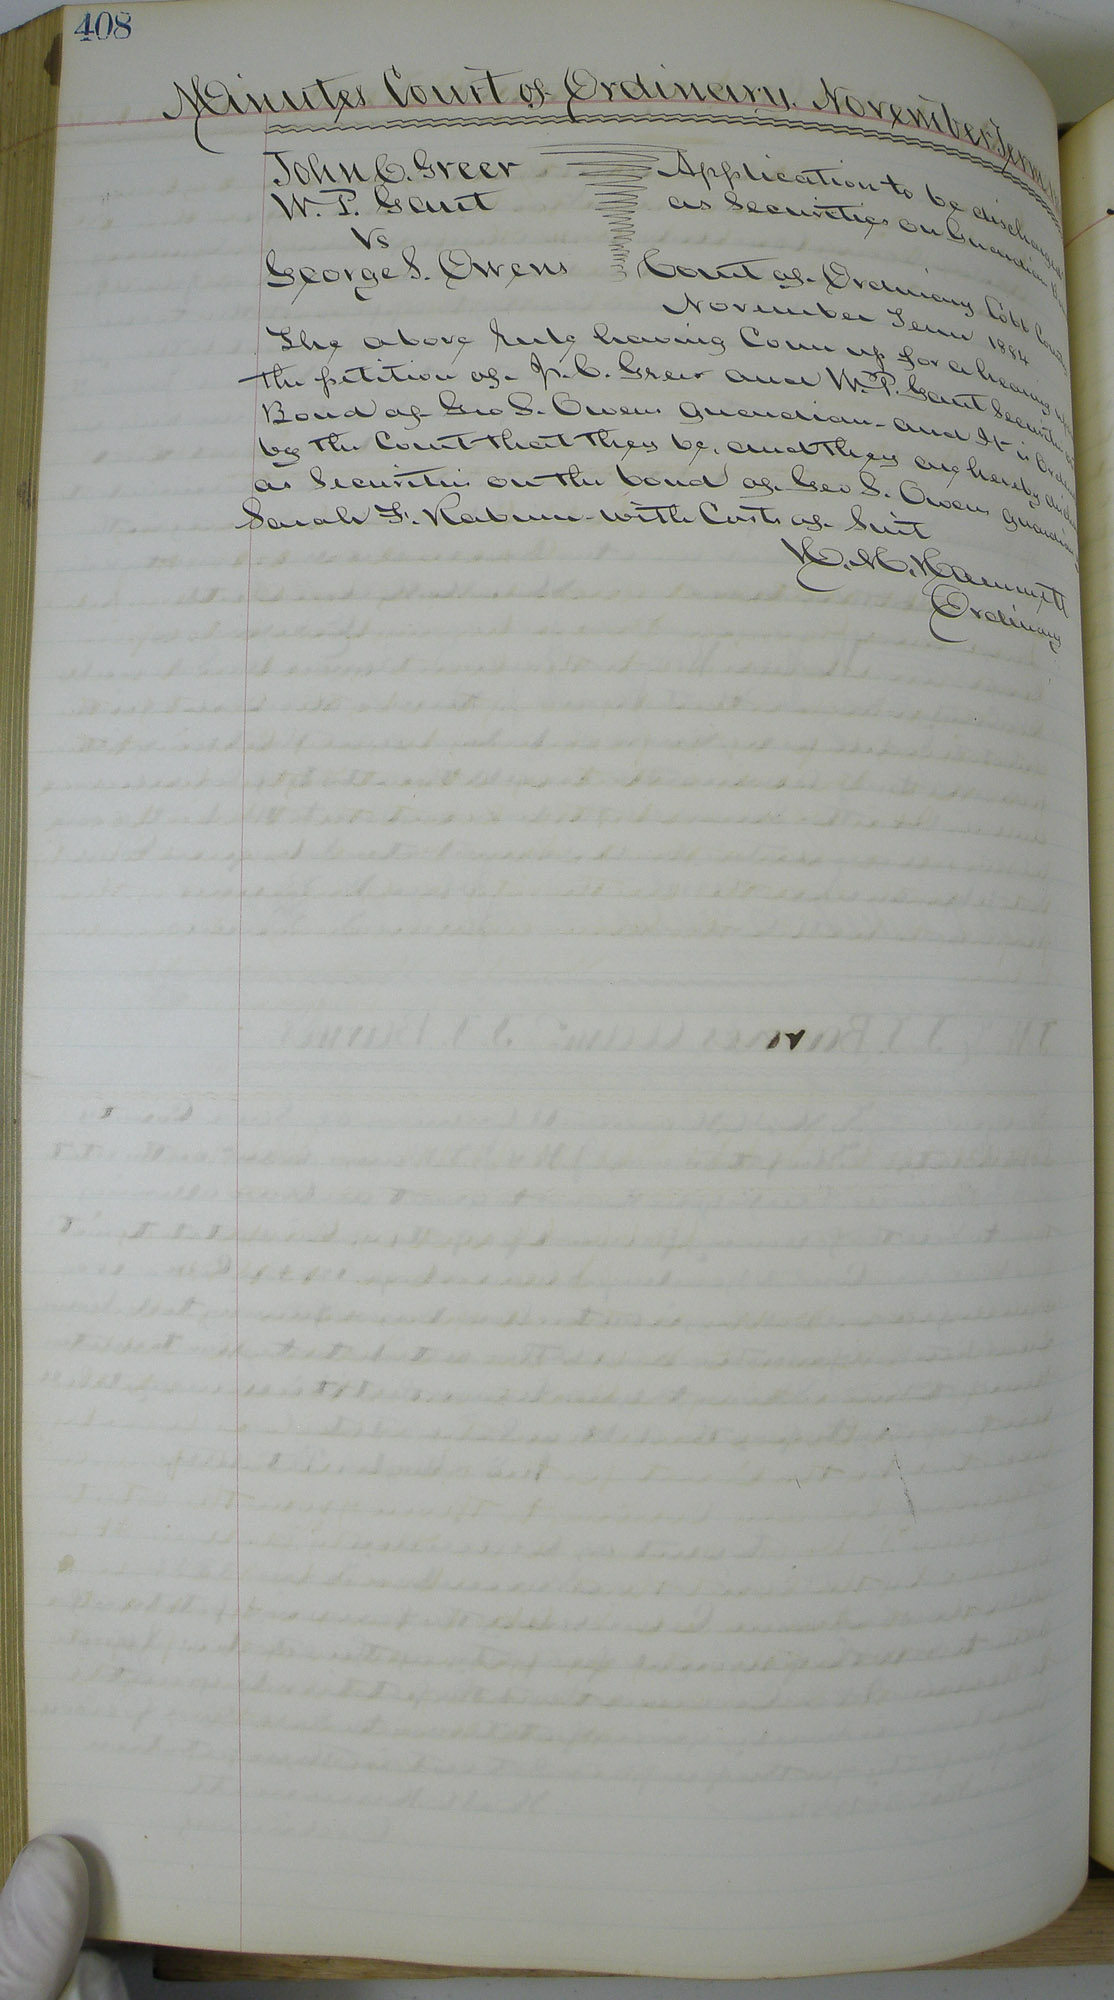 408
Minutes Court of Ordinary. November Term
John C. Greer
W. P. Gant
Vs
George S. Owens
Application to be discharged
as Securities on Guardian
Court of Ordinary Cobb County
November Term 1884
The above rule having Come up for a hearing
the petition of J. C. Greer and W. P. Gant Securities
Bond of Geo S. Owens guardian and It is Ordered
by the Court that they be, and they are hereby
as Securities on the bond of Geo S. Owens guardian
Sarah F. with Costs of Suit
H. M. Hammett
Ordinary